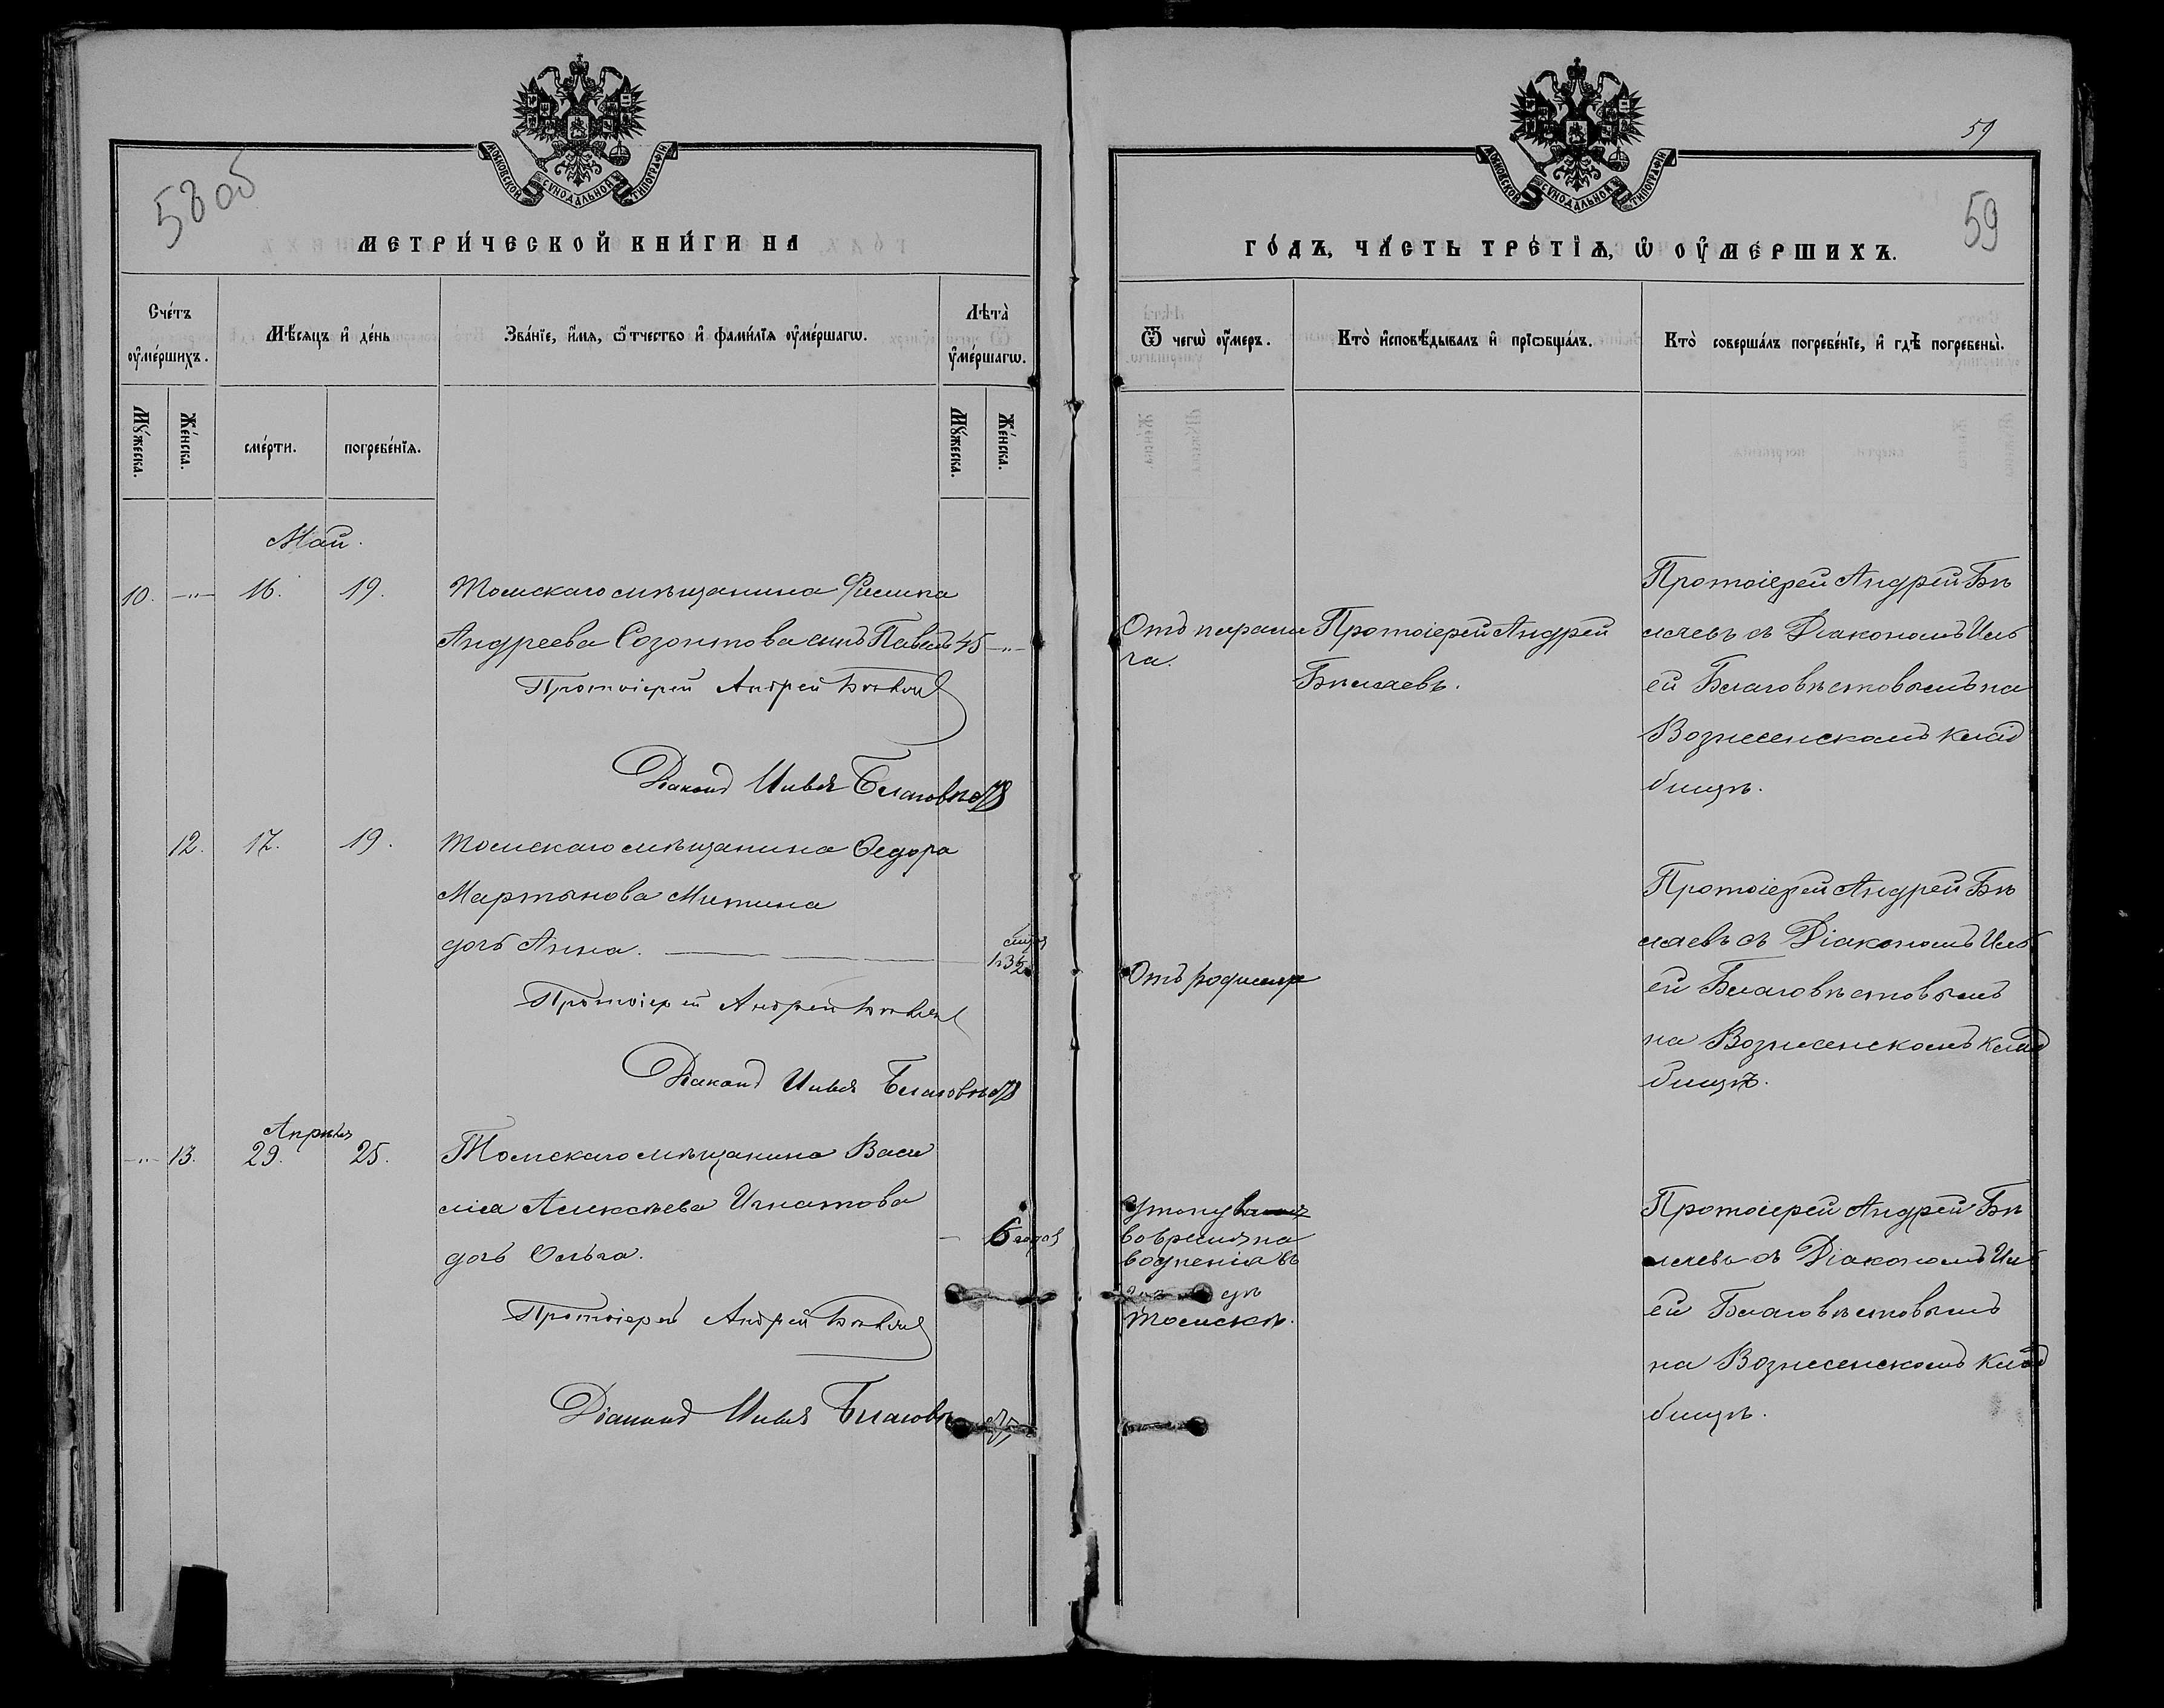 МОСКОВСКОЙ СУНОДАЛЬНОЙ ТИПОГРАФІИ
58 об
МЕТРИ́ЧЕСКОЙ КНИ́ГИ НА
Сче́тъ оу҆ме́ршихъ.
Мѣ́сяцъ и҆ де́нь
Зва́нїе, и҆́мя, ѻ҆́тчество и҆ фами́лїя оу҆ме́ршагѡ.
Лѣта̀ оу҆ме́ршагѡ.
Му́жеска.
Же́нска.
сме́рти.
погребе́нїя.
Му́жеска.
Же́нска.
Май.
10. —"— 16. 19. Томскаго мѣщанина Филипа
Андреева Созонтова сынъ Павелъ 45 —"—
Протоіерей Андрей Бѣляев
Діаконъ Илья Благовѣстов
12. 17. 19. Томскаго мѣщанина Ѳедора
Мартынова Митина
дочь Анна.
Протоіерей Андрей Бѣляев
Діаконъ Илья Благовѣстов
Апрѣля
—"— 13. 29. 25. Томскаго мѣщанина Васи
лія Алексѣева Игнатова
дочь Ольга. — 6 годов
Протоіерей Андрей Бѣляев
Діаконъ Илья Благовѣ
МОСКОВСКОЙ СУНОДАЛЬНОЙ ТИПОГРАФІИ
59
59
ГО́ДЪ, ЧА́СТЬ ТРЕ́ТЇЯ, Ѡ҆ ОУ҆МЕ́РШИХЪ.
Ѿ чегѡ̀ оу҆́меръ.
Кто̀ и҆сповѣ́дывалъ и҆ прїѡбща́лъ.
Кто̀ соверша́лъ погребе́нїе, и҆ гдѣ̀ погребены̀.
Отъ парали
ча.
Протоіерей Андрей
Бѣляевъ.
Протоіерей Андрей Бѣ
ляевъ съ Діакономъ Иль
ей Благовѣстовымъ на
Вознесенскомъ клад
бищѣ.
Отъ родимца
Протоіерей Андрей Бѣ
ляевъ съ Діакономъ Иль
ей Благовѣстовымъ
на Вознесенскомъ клад
бищѣ.
вовремя на
водненія въ
Томскѣ.
Протоіерей Андрей Бѣ
ляевъ съ Діакономъ Иль
ей Благовѣстовымъ
на Вознесенскомъ клад
бищѣ.